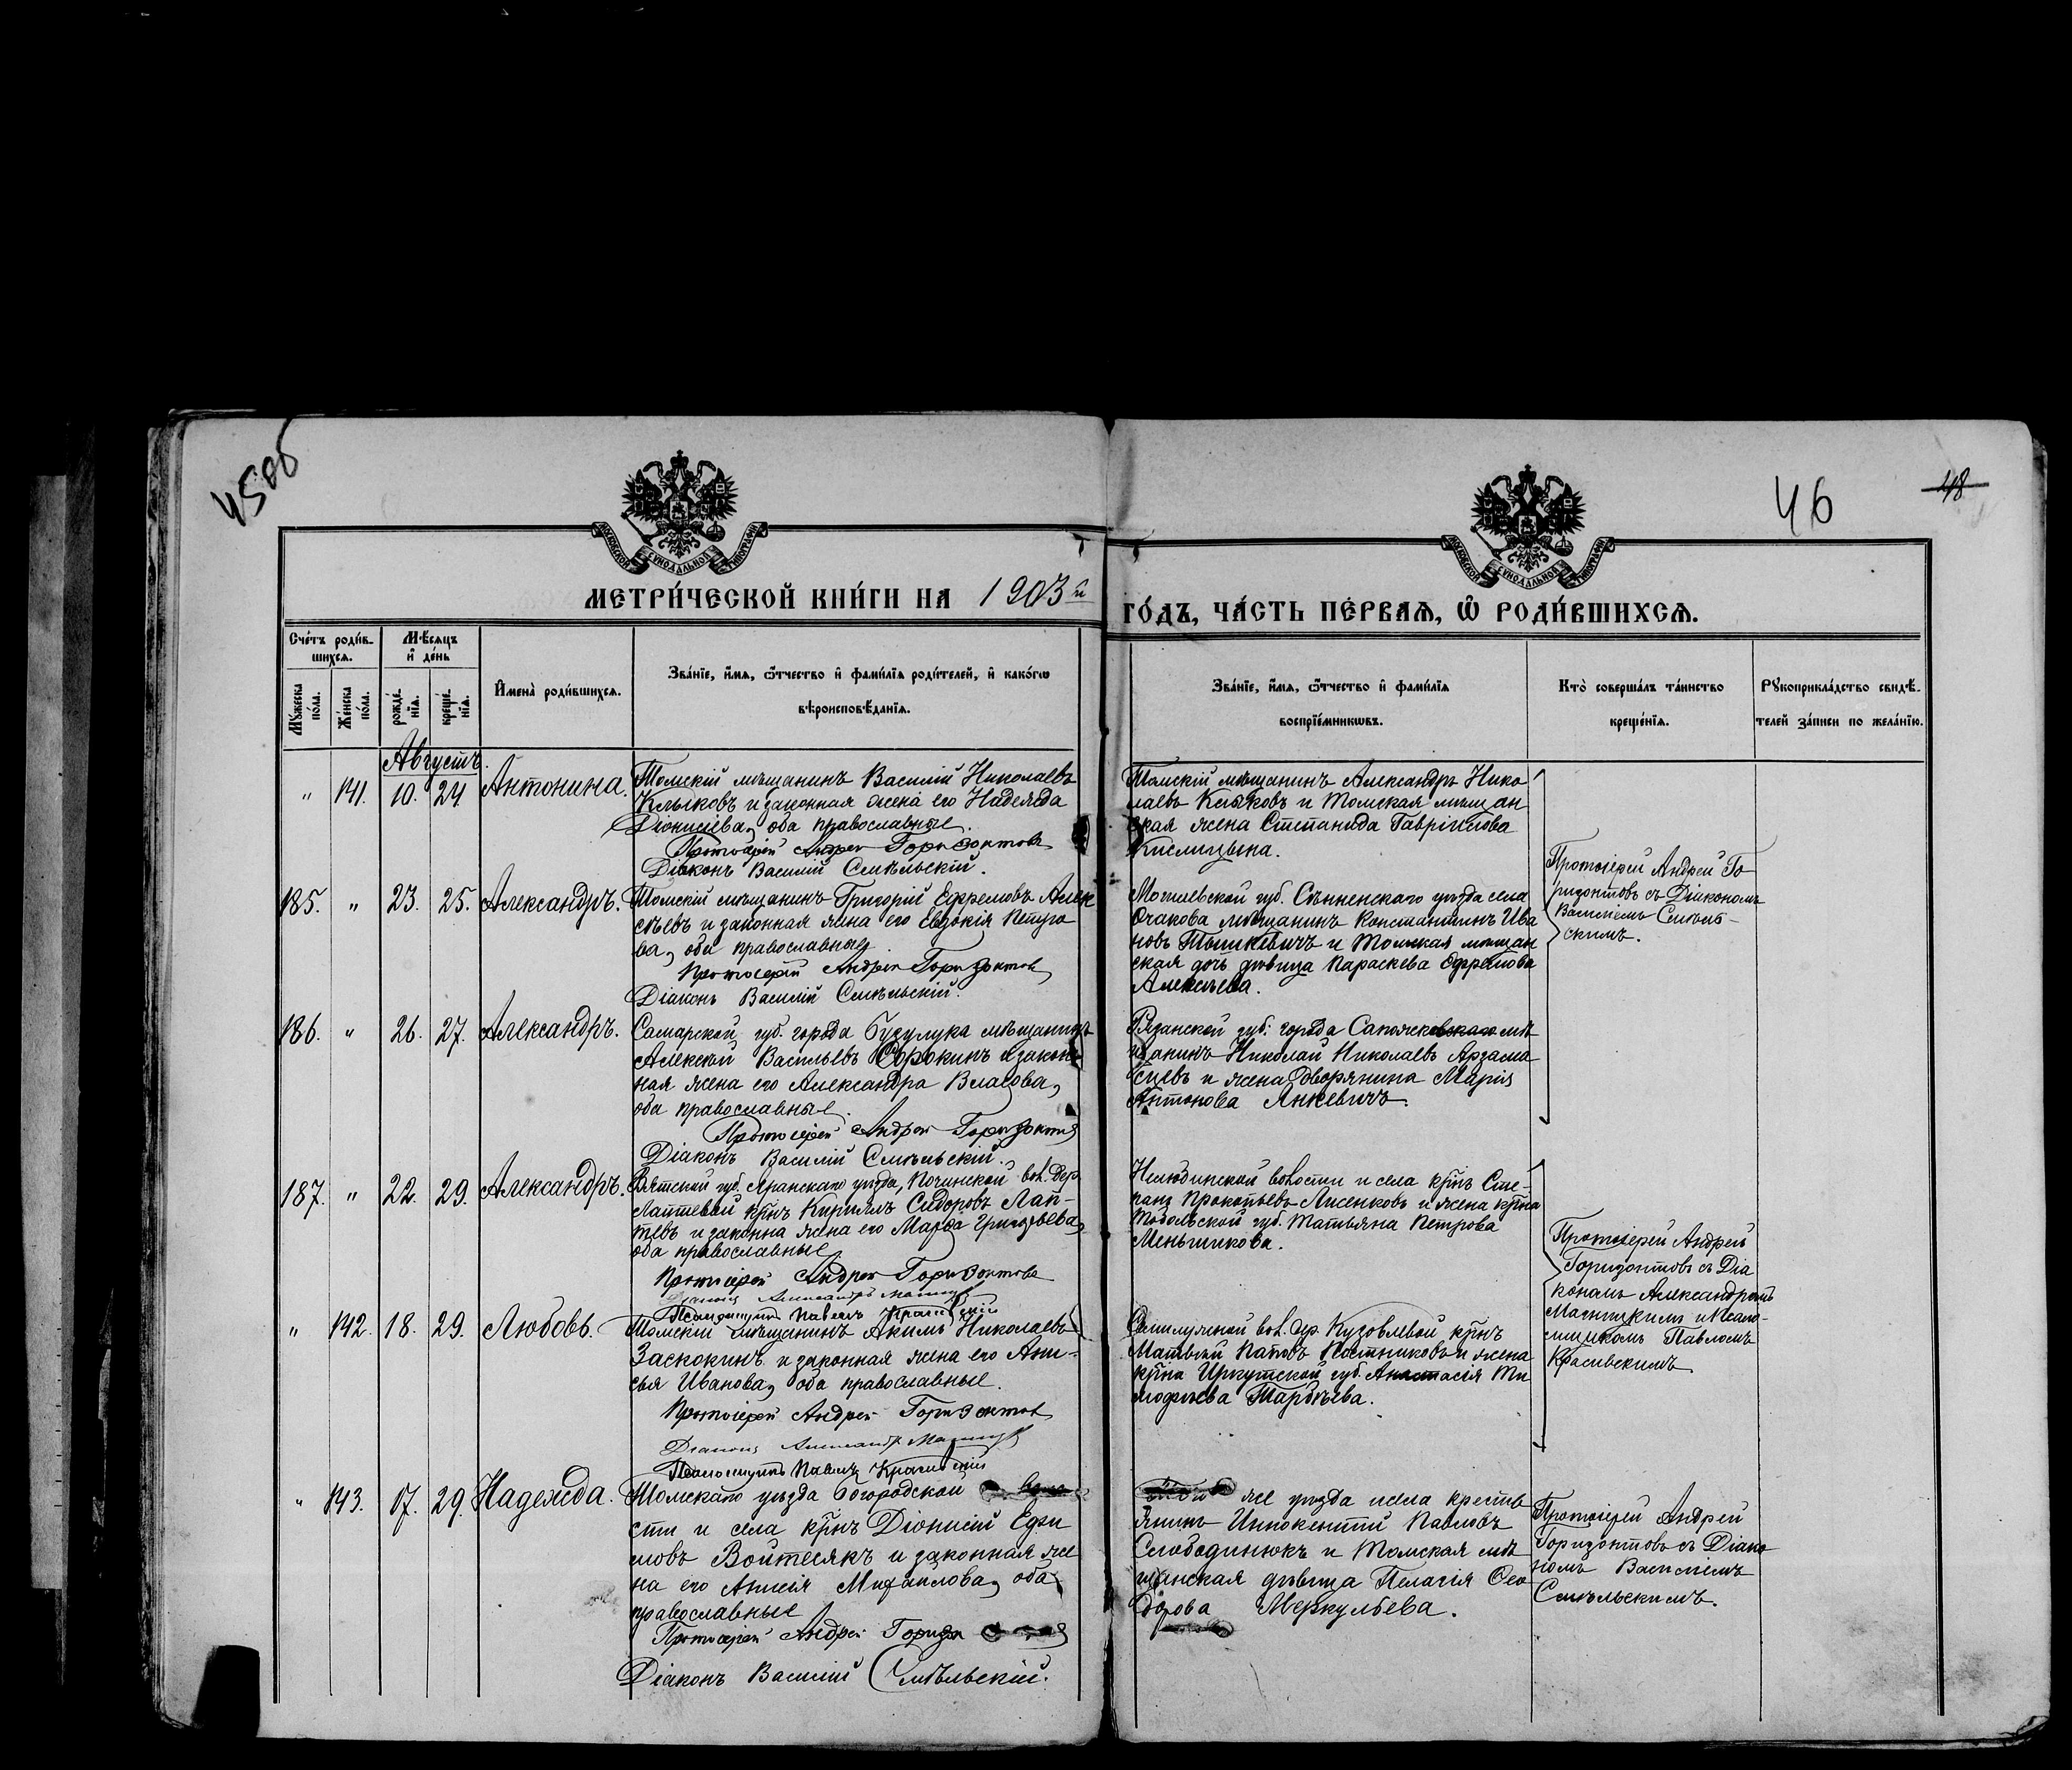 45об
46
48
МОСКОВСКОЙ СѴНОДАЛЬНОЙ ТИПОГРАФІИ
МОСКОВСКОЙ СѴНОДАЛЬНОЙ ТИПОГРАФІИ
МЕТРИ́ЧЕСКОЙ КНИ́ГИ НА 1903й
ГО́ДЪ, ЧА́СТЬ ПЕ́РВАѦ, Ѡ҆ РОДИ́ВШИХСѦ.
Сче́тъ роди́в-
шихсѧ.
Мꙋ́жеска по́ла.
Же́нска по́ла.
Мѣ́сѧцъ
и҆ де́нь
рожде́-
нїѧ.
креще́-
нїѧ.
И҆мена̀ роди́вшихсѧ.
Зва́нїе, и҆́мѧ, ѻ҆́тчество и҆ фами́лїѧ роди́телей, и҆ како́гѡ
вѣроисповѣ́данїѧ.
Зва́нїе, и҆́мѧ, ѻ҆́тчество и҆ фами́лїѧ
воспрїе́мникѡвъ.
Кто̀ соверша́лъ та́инство
креще́нїѧ.
Рꙋкоприкла́дство свидѣ́-
телей за́писи по жела́нїю.
Августъ.
" 141. 10. 24. Антонина.
Томскій мѣщанинъ Василій Николаевъ
Клыковъ и законная жена его Надежда
Діонисіева, оба православные.
Протоіерей Андрей Горизонтовъ
Діаконъ Василій Смѣльскій.
Томскій мѣщанинъ Александръ Нико
лаевъ Клыковъ и Томская мѣщан
ская жена Степанида Гавріилова
Кислицына.
Протоіерей Андрей Го-
ризонтовъ съ Діакономъ
Василіемъ Смѣль-
скимъ.
185. " 23. 25. Александръ.
Томскій мѣщанинъ Григорій Ефремовъ Алек
сѣевъ и законная жена его Евдокія Петро
ва, оба православные.
Протоіерей Андрей Горизонтовъ
Діаконъ Василій Смѣльскій.
Могилевской губ. Сѣнненскаго уѣзда села
Очакова мѣщанинъ Константинъ Ива
новъ Тышкевичъ и Томская мѣщан
ская дочь дѣвица Параскева Ефремова
Алексѣева.
186. " 26. 27. Александръ.
Самарской губ. города Бузулука мѣщанинъ
Алексѣй Васильевъ Сорокинъ и закон
ная жена его Александра Власова,
оба православные.
Протоіерей Андрей Горизонтовъ
Діаконъ Василій Смѣльскій.
Рязанской губ. города Сапожковскаго мѣ
щанинъ Николай Николаевъ Арзама
сцевъ и жена дворянина Марія
Антонова Янкевичъ.
187. " 22. 29. Александръ.
Вятской губ. Яранскаго уѣзда, Починской вол. дер.
Лаптевой крнъ Кириллъ Сидоровъ Лап-
тевъ и законна жена его Марѳа Григорьева,
оба православные.
Протоіерей Андрей Горизонтовъ
Діаконъ Александръ
Псаломщикъ Павелъ Красивскій
Нелюбинской волости и села крнъ Сте-
панъ Прокопьевъ Лисенковъ и жена крна
Тобольской губ. Татьяна Петрова
Меньшикова.
Протоіерей Андрей
Горизонтовъ съ Діа
кономъ Александромъ
и Псало-
мщикомъ Павломъ
Красивскимъ
" 142. 18. 29. Любовь.
Томскій мѣщанинъ Акимъ Николаевъ
Заскокинъ и законная жена его Ани-
сья Иванова, оба православные.
Протоіерей Андрей Горизонтовъ
Діаконъ Александръ
Псаломщикъ Павелъ Красивскій
Семилужной вол. дер. Кузовлевой крнъ
Матвѣй Постниковъ и жена
крна Иркутской губ. Анастасія Ти
моѳеева Тарбѣева.
" 143. 17. 29. Надежда.
Томскаго уѣзда Богородской воло
сти и села крнъ Діонисій Ефи
мовъ Войтесякъ и законная же
на его Анисія Михаилова, оба
православные
Протоіерей Андрей Горизонтовъ
Діаконъ Василій Смѣльскій.
же уѣзда и села крестья
янинъ Иннокентій Павловъ
Слободинюкъ и Томская мѣ
щанская дѣвица Пелагія Ѳео
дорова Меркульева.
Протоіерей Андрей
Горизонтовъ съ Діако
номъ Василіемъ
Смѣльскимъ.